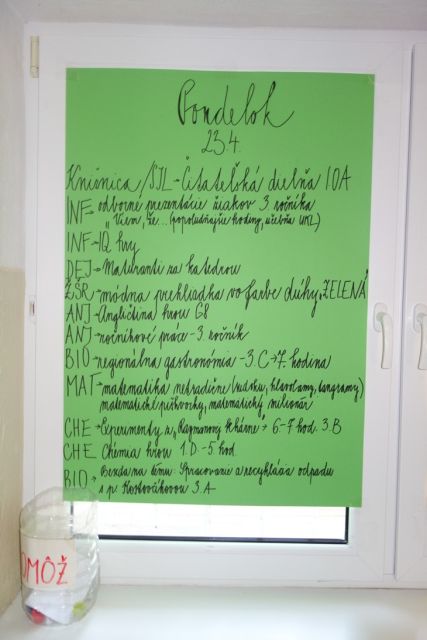 Pondelok
23.4.
Knižnica/SJL-Čitateľská dielňa IOA
INF- odborné prezentácie žiakov 3. ročníka
"Viem, že... (popoludňajšie hodiny, učebňa
INF-IQ hry
DEJ-Maturanti za katedrou
ŽŠR-módna prehliadka vo farbe dúhy-ZELENÁ
ANJ-Angličtina hrou G8
ANJ-ročníkové práce-3. ročník
BIO-regionálna gastronómia-3.C→7. hodina
MAT-matematika netradične (sudoku, hlavolamy, tangramy,
matematické piškvorky, matematický milionár
CHE-Experimenty z 6-7 hod. 3.B
CHE Chémia hrou 1.D-5 hod.
BIO- Beseda na tému: Spracovanie a recyklácia odpadu
s p. 3.A
OMÔŽ